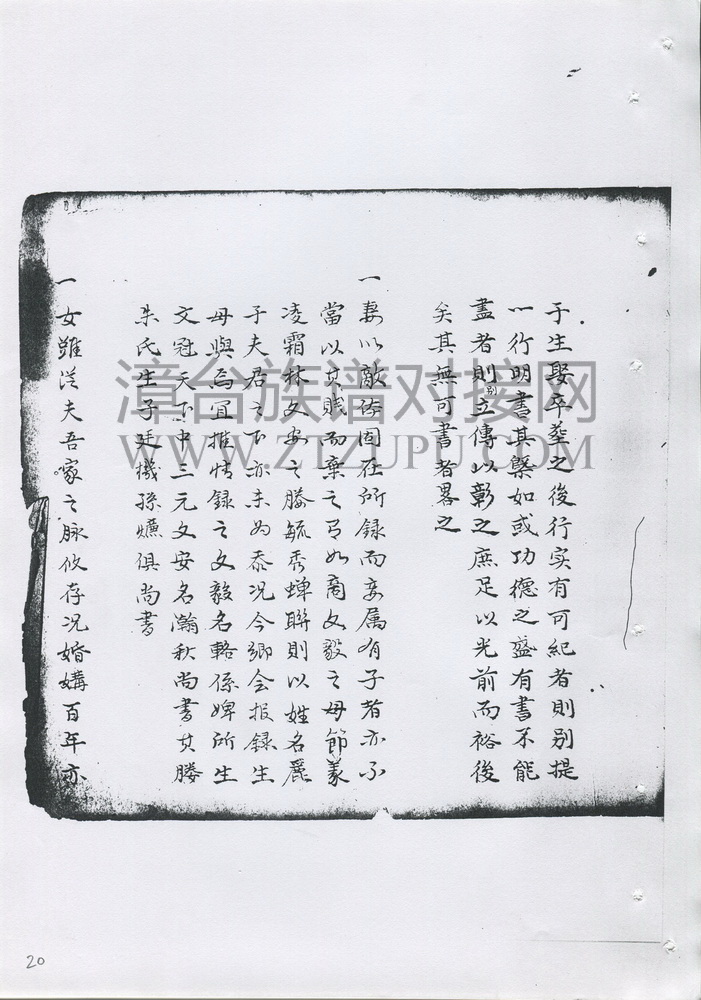 于生娶卒塟之後行实有可紀者則别提
一行明書其槩如或功德之盛有書不能
盡者則别立傳以彰之庶足以光前而裕後
矣其無可書者畧之
一妻以敵体固在所録而妾属有子者亦不
當以其賎而棄之弓如商文毅之母節義
凌霜林文安之媵毓秀蟬聯則以姓名麗
于夫君之下亦未为忝况今鄉会报録生
母與焉宜推情録之文毅名輅係婢所生
文冠天下中三元文安名瀚秋尚書其媵
朱氏生子廷機孫爌俱尚書
一女雖從夫吾家之脉攸存况婚媾百年亦
漳台族谱对接网
WWW.ZTZUPU.COM
20